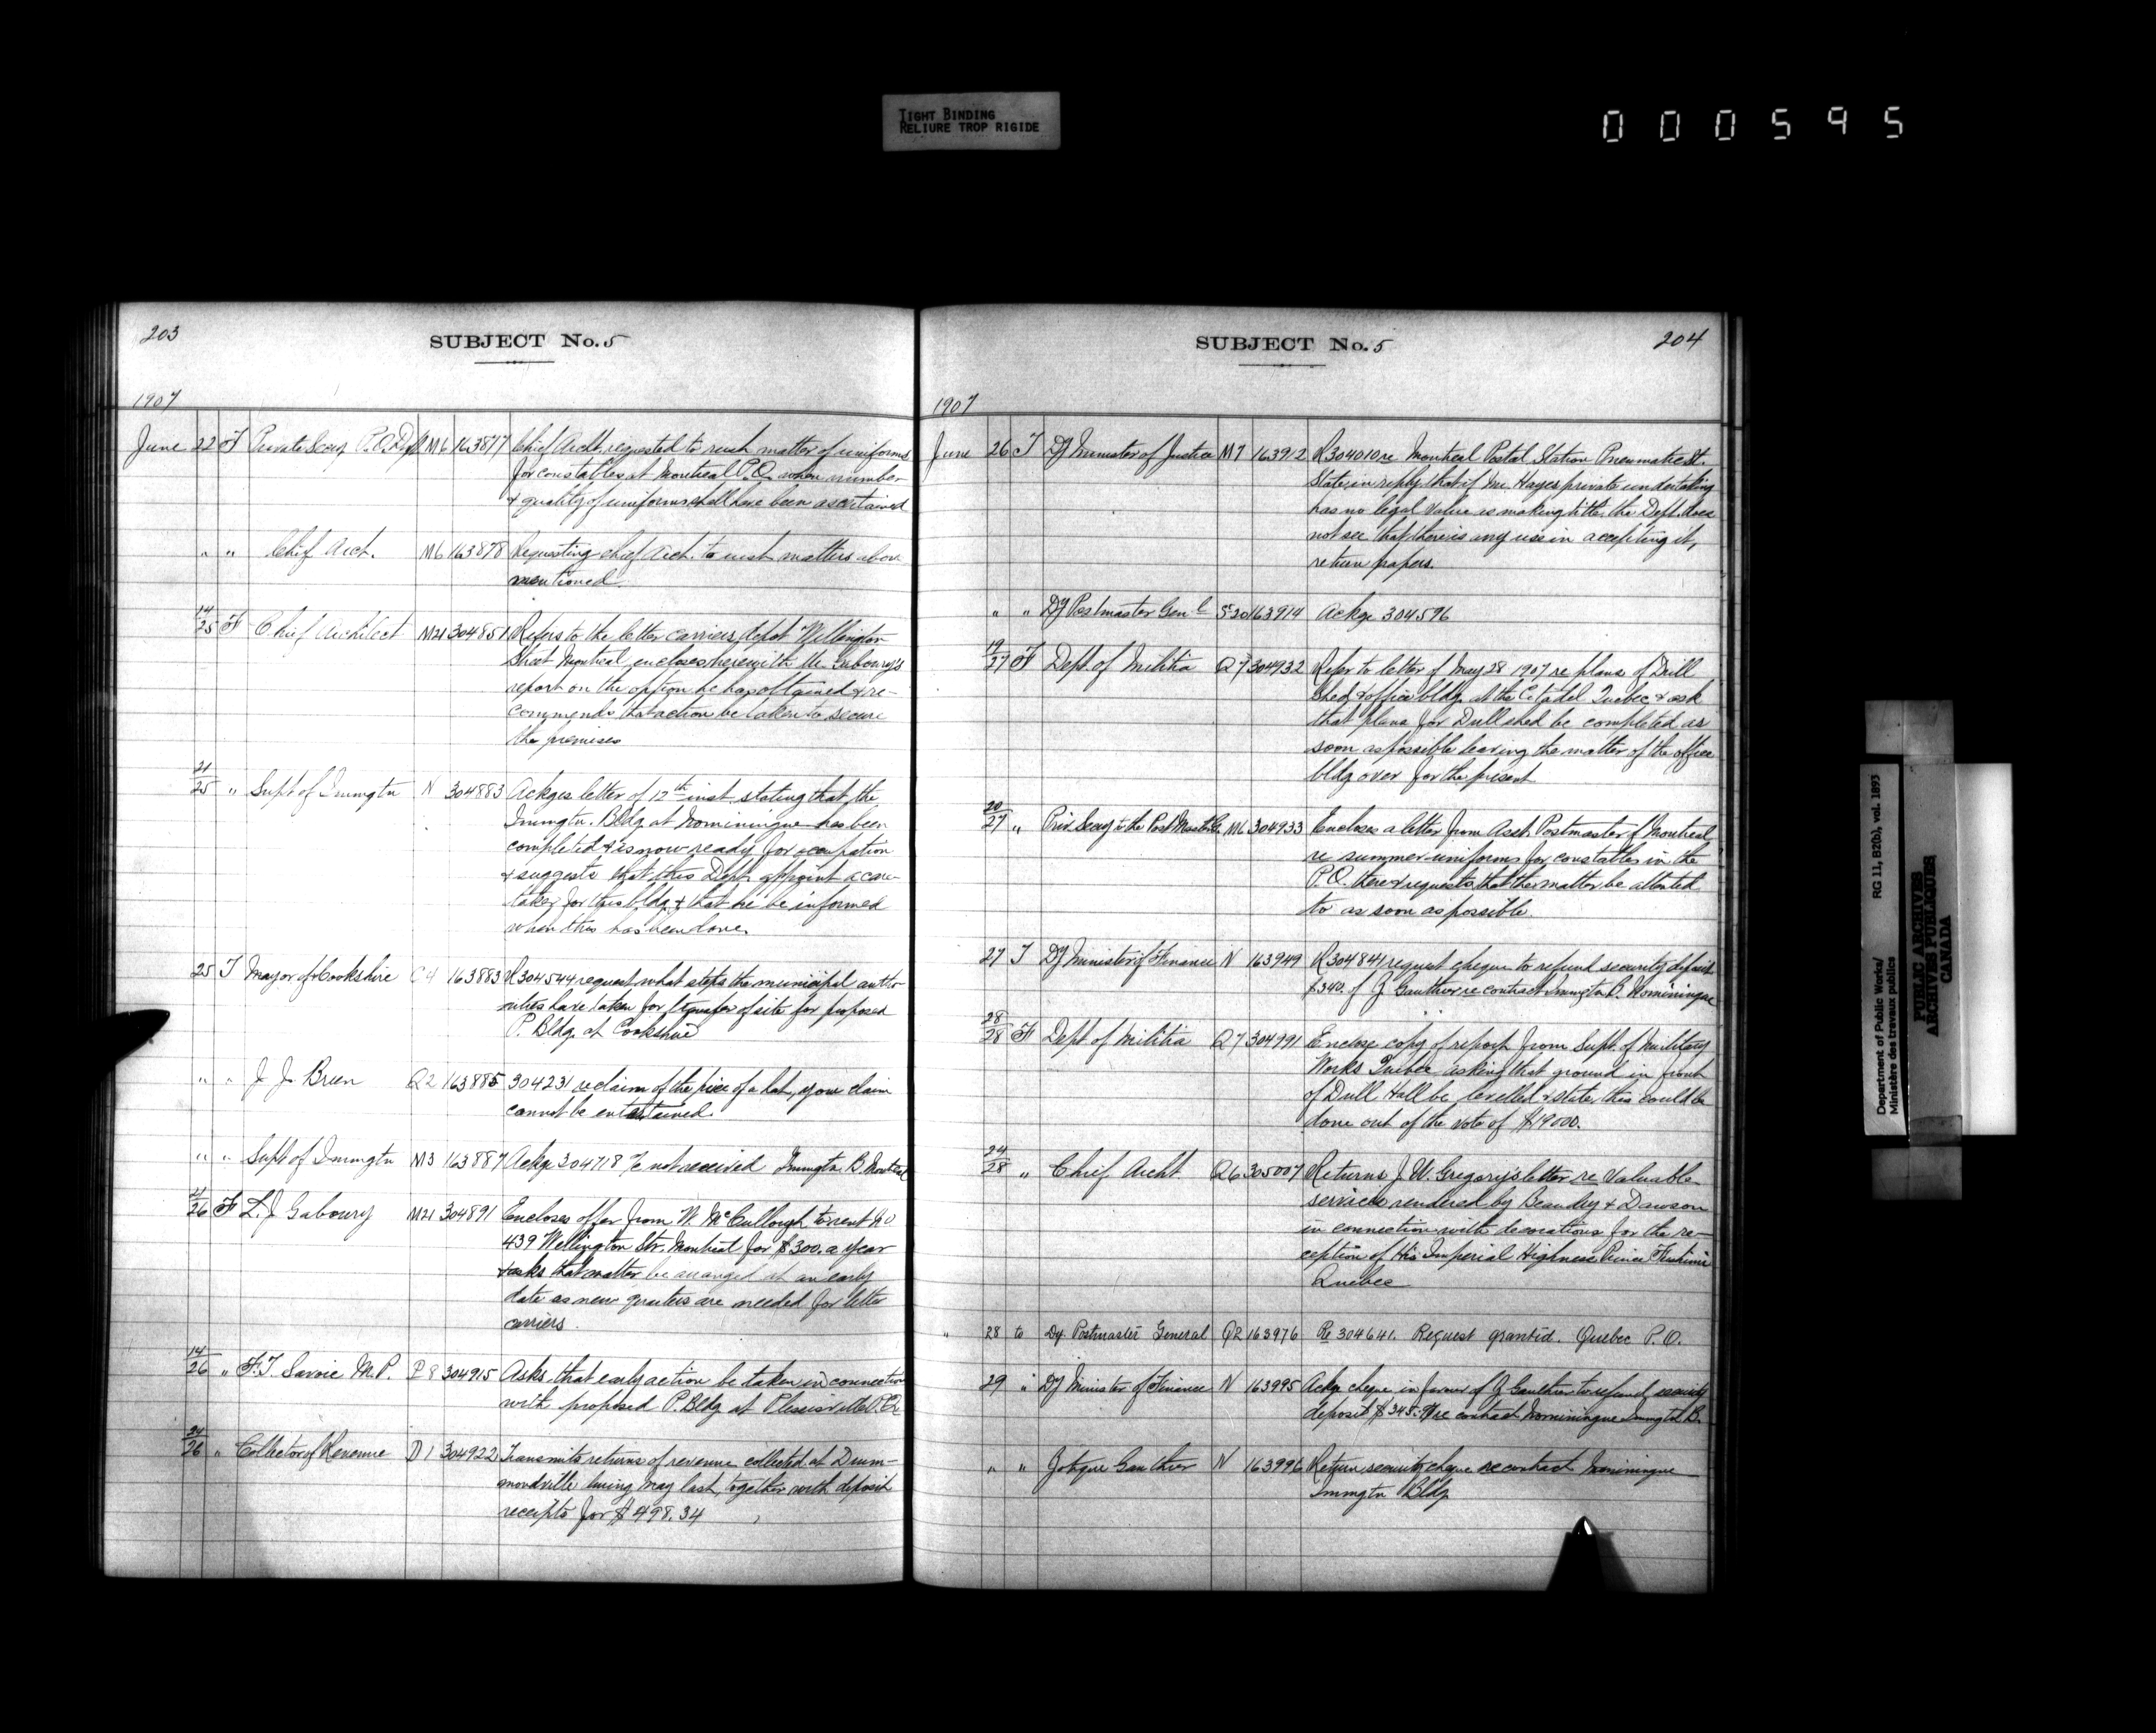 TIGHT BINDING
RELIURE TROP RIGIDE
000595
203
SUBJECT No. 5
1907
June 22 F Private Secy P.O. Dept M6 163877 Chief Archt. requested to rush matter of uniforms
for constables at Montreal P.O. when number
& quality of uniforms shall have been ascertained
" " Chief Arch. M6 163878 Requesting chief Arch. to rush matters above
mentioned
14/25 F Chief Architect M21 304851 Refers to the letter carriers depot Wellington
Street Montreal, encloses herewith Mr. Gaboury's
report on the option he has obtained & re-
commends that action be taken to secure
the premises
21/25 " Supt of Immgtn N 304883 Ackges letter of 12th inst. stating that the
Immgtn. Bldg at Nominingue has been
completed & is now ready for occupation
& suggests that this Dept. appoint a care-
taker for this bldg & that he be informed
when this has been done.
25 T Mayor of Cookshire C4 163883 R304544 request what steps the municipal autho-
rities have taken for transfer of site for proposed
P. Bldg. at Cookshire
" " J. J. Breen Q2 163885 304231 re claim of the price of a hat, your claim
cannot be entertained.
" " Supt of Immgtn M3 163887 Ackge 304718 % not received Immgtn B. Montreal
21/26 F L. J. Gaboury M21 304891 Encloses offer from W. McCullough to rent No
439 Wellington Str. Montreal for $300. a year
& asks that matter be arranged at an early
date as new quarters are needed for letter
carriers.
14/26 " F. T. Savoie M.P. P8 304915 Asks that early action be taken in connection
with proposed P. Bldg at Plessisville P.Q.
24/26 " Collector of Revenue D1 304922 Transmits returns of revenue collected at Drum-
mondville during May last, together with deposit
receipts for $498.34
SUBJECT No. 5
204
1907
June 26 T Dy Minister of Justice M7 163912 R304010 re Montreal Postal Station Pneumatic St.
State in reply that if Mr. Hayes private undertaking
has no legal value as making title, the Dept. does
not see that there is any use in accepting it,
return papers.
" " Dy Postmaster Genl S20 163914 Ackge 304596
19/27 F Dept. of Militia Q7 304932 Refer to letter of May 28 1907 re plans of Drill
Shed & office bldg. at the Citadel Quebec & ask
that plans for Drill shed be completed as
soon as possible leaving the matter of the office
bldg over for the present
20/27 " Priv. Secy to the Post Master G. M6 304933 Encloses a letter from Asst. Postmaster of Montreal
re summer uniforms for constables in the
P.O. there & requests that the matter be attended
to as soon as possible
27 T Dy Minister of Finance N 163949 R304841 request cheque to refund security deposit
$340. of J Gauthier re contract Immgtn B. Nominingue
28/28 F Dept of Militia Q7 304991 Enclose copy of report from Supt. of Military
Works Quebec asking that ground in front
of Drill Hall be levelled & state this could be
done out of the vote of $19000.
24/28 " Chief Archt Q6 305007 Returns J. W. Gregory's letter re Valuable
services rendered by Beaudry & Dawson
in connection with decorations for the re-
ception of His Imperial Highness Prince Fushimi
Quebec
" 28 to Dy. Postmaster General Q2 163976 Re 304641. Request granted. Quebec P.O.
29 " Dy Minister of Finance N 163995 Ackge cheque in favour of J Gauthier to refund security
deposit $345. re contract Nominingue Immgtn B.
" " Gauthier N 163996 Return security cheque re contract Nominingue
Immgtn Bldg
Department of Public Works/ RG 11, B2(b), vol. 1893
Ministère des travaux publics
PUBLIC ARCHIVES
ARCHIVES PUBLIQUES
CANADA